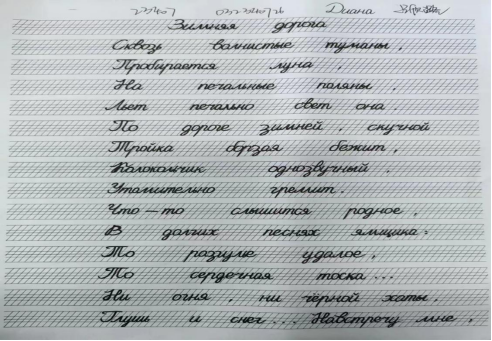 231407 Диана
Зимняя дорога
Сквозь волнистые туманы,
Пробирается луна,
На печальные поляны,
Льет печально свет она.
По дороге зимней, скучной
Тройка борзая бежит,
Колокольчик однозвучный,
Утомительно гремит.
Что-то слышится родное,
В долгих песнях ямщика:
То разгулье удалое,
То сердечная тоска...
Ни огня, ни чёрной хаты,
Глушь и снег... Навстречу мне,